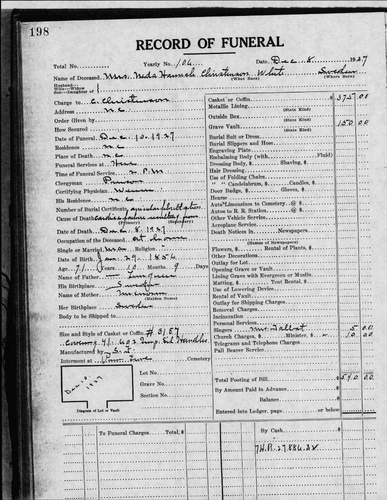 198
RECORD OF FUNERAL
Total No. Yearly No. 106 Date, Dec. 8, 1927
Name of Deceased, Mrs. Neda Hannah Christenson White Sweden
(What Race) (Where Born)
Husband—
Wife—Widow
Son—Daughter of
Charge to C. Christenson
Address N.C.
Order Given by
How Secured
Date of Funeral Dec. 10, 1927
Residence N.C.
Place of Death N.C.
Funeral Services at
Time of Service 2 P.M.
Clergyman
Certifying Physician
His Residence N.C.
Number of Burial Certificate
Cause of Death
(Primary) (Secondary)
Date of Death Dec. 8, 1927
Occupation of the Deceased At Home
Single or Married Religion
Date of Birth Jan. 29, 1856
Age 71 Years 10 Months 9 Days
Name of Father
His Birthplace Sweden
Name of Mother Unknown
(Maiden Name)
Her Birthplace Sweden
Body to be Shipped to
Size and Style of Casket or Coffin #3157
Covering
Manufactured by
Interment at Cemetery
Lot No.
Grave No.
Section No.
Dec. 10, 1927
Diagram of Lot or Vault
Casket or Coffin 375 00
Metallic Lining
(State Kind)
Outside Box
(State Kind)
Grave Vault 150 00
Burial Suit or Dress
Burial Slippers and Hose
Engraving Plate
Embalming Body (with Fluid)
Dressing Body, $ Shaving, $
Hair Dressing
Use of Folding Chairs
" " Candelabrum, $ Candles, $
Door Badge, $ Gloves, $
Hearse
Autos-Limousines to Cemetery @ $
Autos to R. R. Station @ $
Other Vehicle Service
Aeroplane Service
Death Notices in Newspapers
(Names of Newspapers)
Flowers, $ Rental of Plants, $
Other Decorations
Outlay for Lot
Opening Grave or Vault
Lining Grave with Evergreen or Muslin
Matting, $ Tent Rental, $
Use of Lowering Device
Rental of Vault
Outlay for Shipping Charges
Removal Charges
Cremation
Incinerating
Personal Service
Singers Mrs. Talbot 5 00
Church Charges, $ Minister 10 00
Telegrams and Telephone Charges
Pall Bearer Service
Total Footing of Bill $540 00
By Amount Paid in Advance
Balance
Entered into Ledger, page or below.
To Funeral Charges Total, $ By Cash $